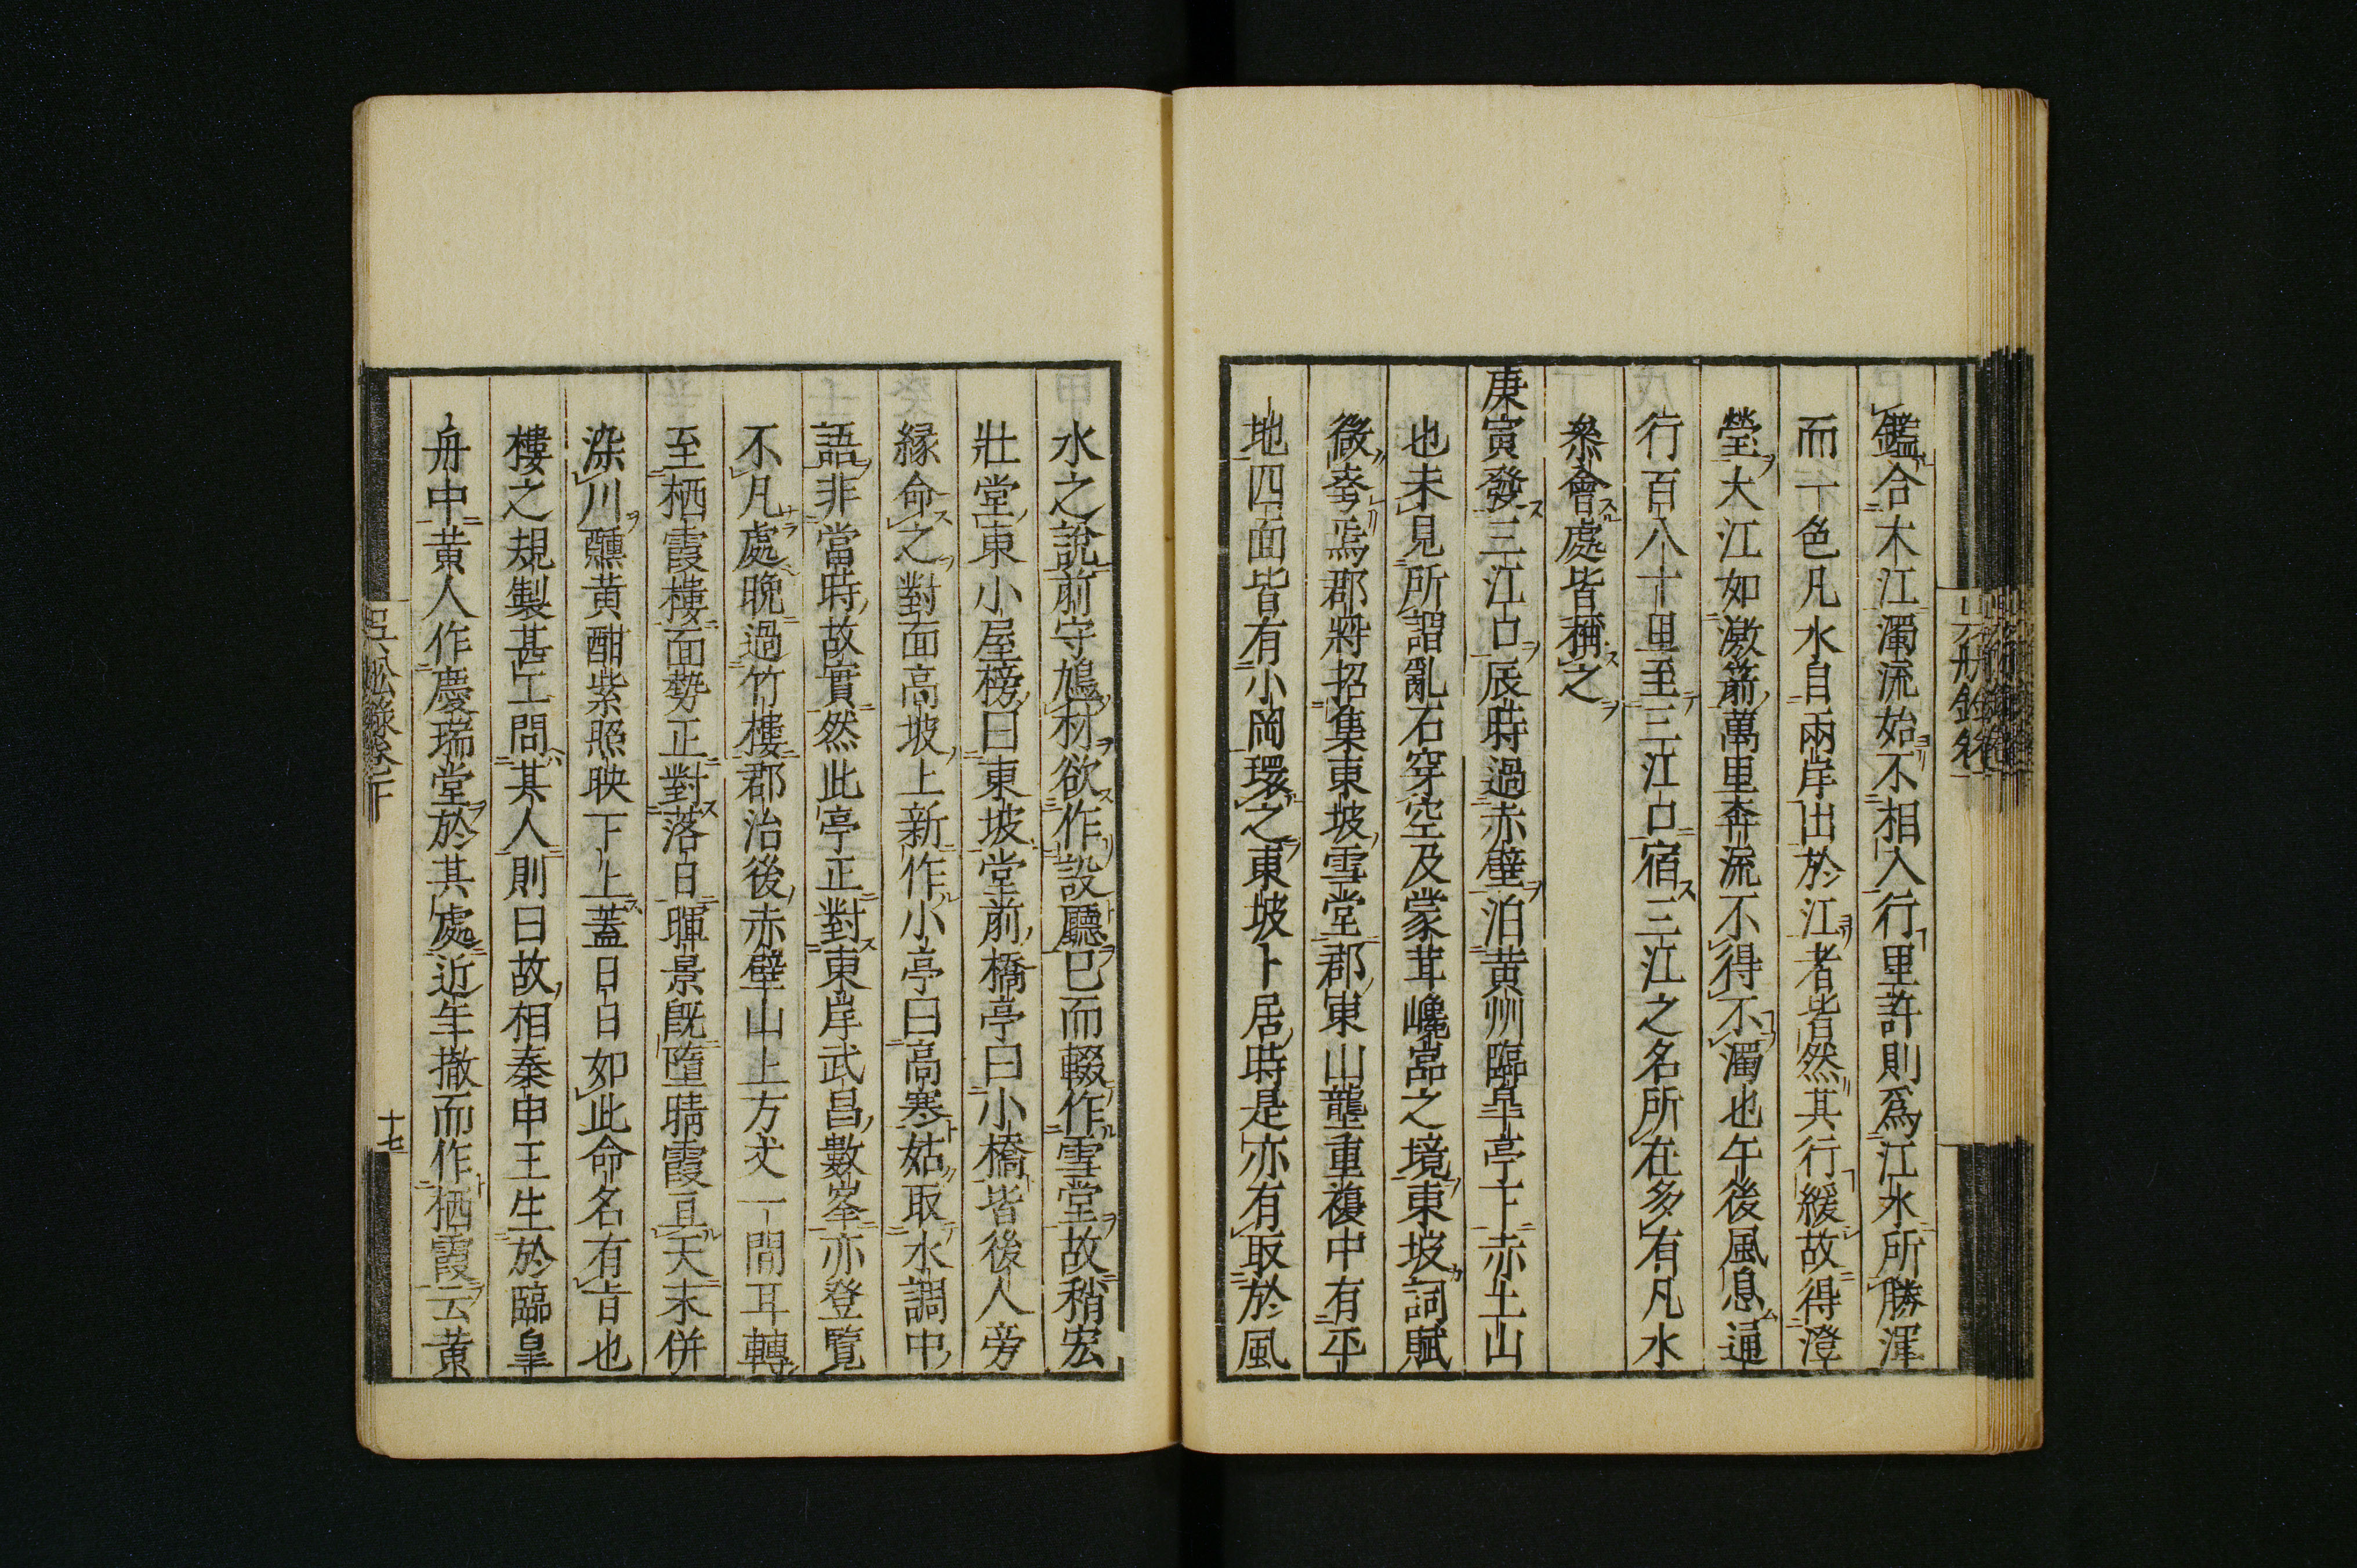 鑑合木江濁流始不相入行里許則爲江水所勝渾
而一色凡水自兩岸出於江者皆然其行緩故得澄
瑩大江如激箭萬里奔流不得不濁也午後風息通
行百八十里至三江口宿三江之名所在多有凡水
叅會處皆稱之
庚寅發三江口辰時過赤壁泊黄州臨皐亭下赤土山
也未見所謂亂石穿空及蒙茸巉嵓之境東坡詞賦
微夸焉郡將招集東坡雪堂郡東山壟重複中有平
地四面皆有小岡環之東坡卜居時是亦有取於風
水之說前守鳩材欲作設廳已而輟作雪堂故稍宏
壯堂東小屋榜曰東坡堂前橋亭曰小橋皆後人旁
縁命之對面高坡上新作小亭曰高寒姑取水調中
語非當時故實然此亭正對東岸武昌數峯亦登覽
不凡處晚過竹樓郡治後赤壁山上方丈一間耳轉
至栖霞樓面勢正對落日暉景旣墮晴霞亘天末併
染川醺黄酣紫照映下上蓋日日如此命名有旨也
樓之規製甚工問其人則曰故相秦申王生於臨皐
舟中黄人作慶瑞堂於其處近年撤而作栖霞云黄
吴船錄卷下
十七